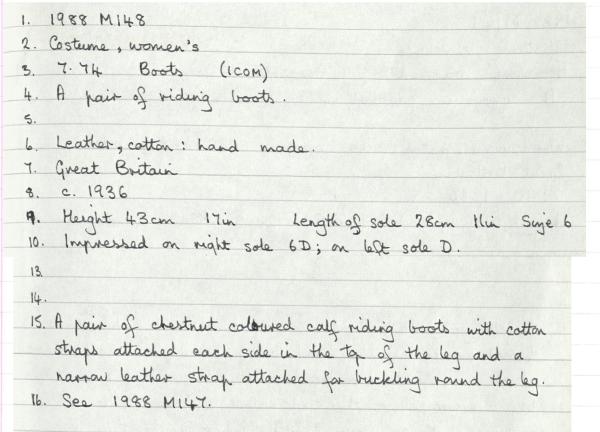 1. 1988 M148
2. Costume, women's
3. 7.74 Boots (ICOM)
4. A pair of riding boots.
5.
6. Leather, cotton : hand made.
7. Great Britain
8. c. 1936
9. Height 43cm 17in Length of sole 28cm 11in Size 6
10. Impressed on right sole 6D; on left sole D.
13.
14.
15. A pair of chestnut coloured calf riding boots with cotton
straps attached each side in the top of the leg and a
narrow leather strap attached for buckling round the leg.
16. See 1988 M147.